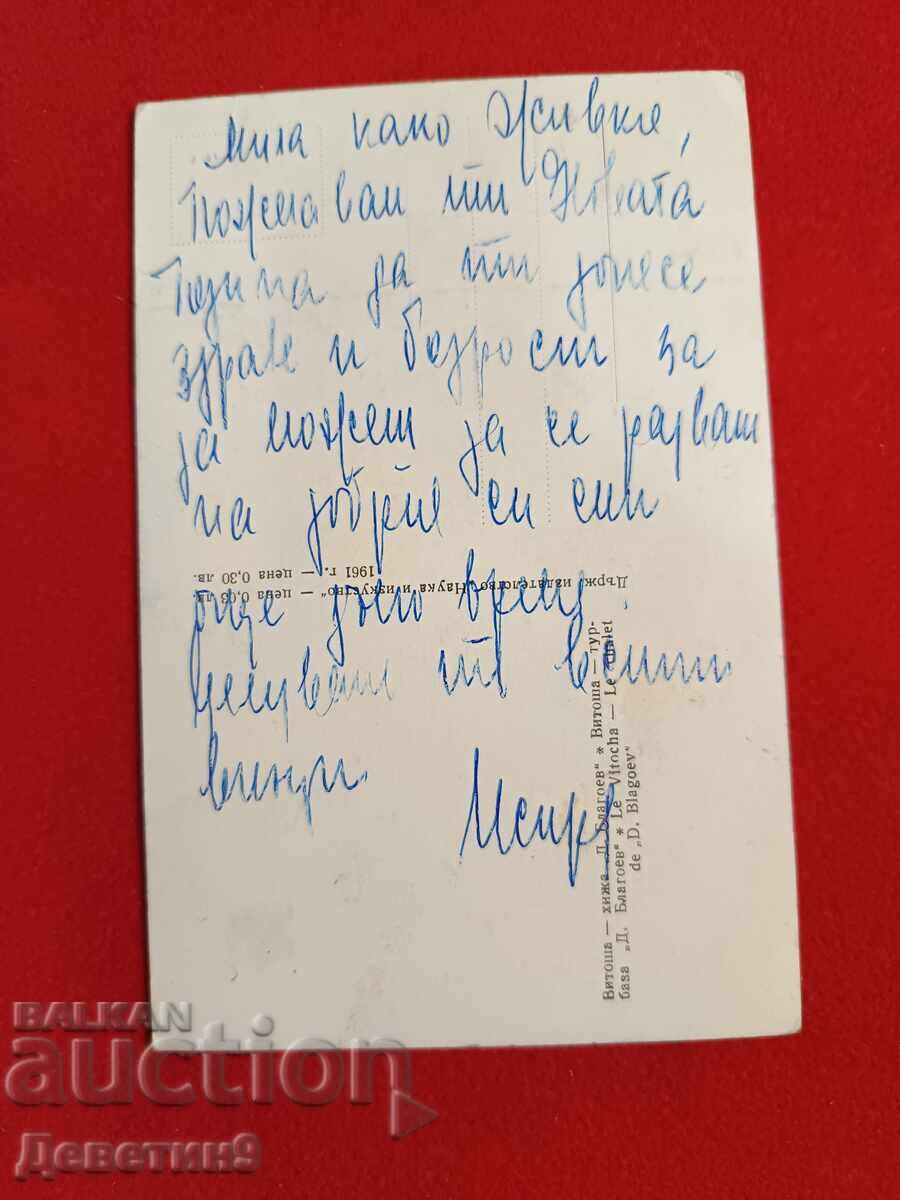 Мила како Живке,
Пожелавам ти Новата
Година да ти донесе
здраве и бодрост за
да можеш да се радваш
на добрия си син
още дълго време.
Целувам те
Държ. издателство „Наука и изкуство“ — цена 0,03 лв.
1961 г. — цена 0,30 лв.
Витоша — хижа „Д. Благоев“ * Витоша — тур-
база „Д. Благоев“ * Le Vitocha — Le chalet
de „D. Blagoev“
BALKAN
auction
Деветин9